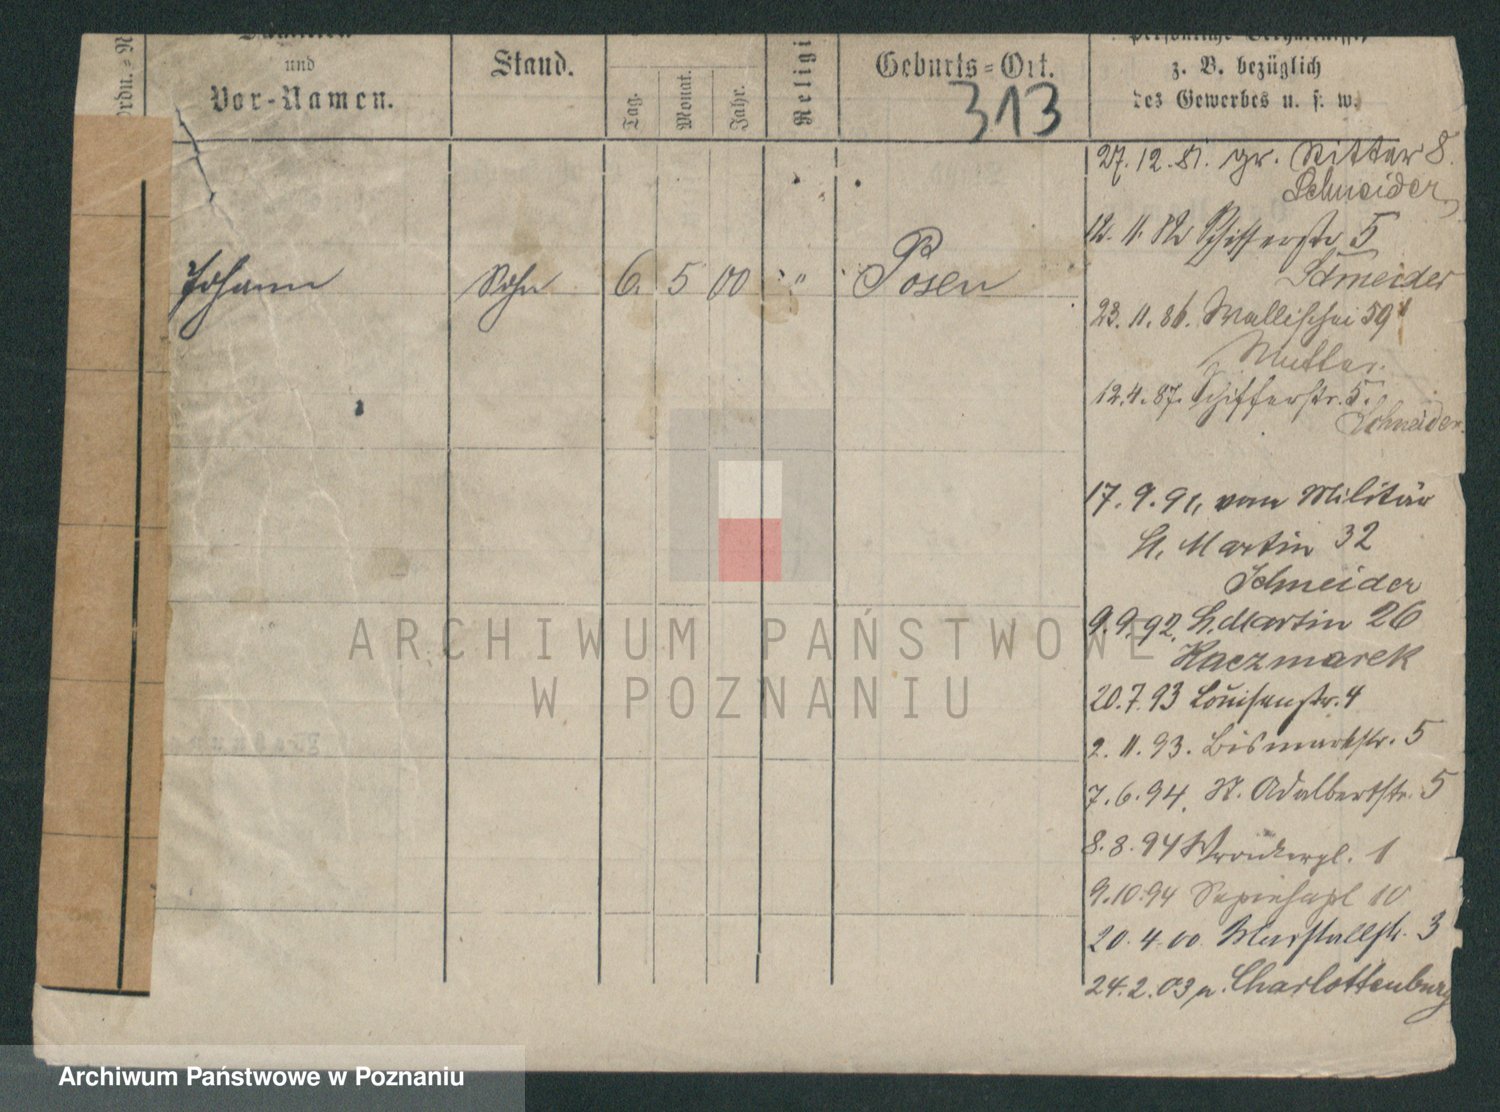 Ordn.=N
und
Vor-Namen.
Stand.
Tag.
Monat.
Jahr.
Religi
Geburts=Ort.
313
z. B. bezüglich
des Gewerbes u. s. w.
27. 12. 81. gr. Ritter 8.
Schneider
12. 11. 82 Schifferstr 5
Schneider
Johann Sohn 6. 5 00 " Posen
23. 11. 86. Wallischei 59
Mutter.
12. 4. 87. Schifferstr. 5.
Schneider.
17. 9. 91, vom Militär
St. Martin 32
Schneider
9. 9. 92. St. Martin 26
Kaczmarek
20. 7. 93 Louisenstr. 4
2. 11. 93. Bismarkstr. 5
7. 6. 94. St. Adalbertstr. 5
8. 8. 94 Wronkerpl. 1
9. 10. 94 Sapiehapl 10
20. 4. 00 Marstallstr. 3
24. 2. 03 n. Charlottenburg
ARCHIWUM PAŃSTWOWE
W POZNANIU
Archiwum Państwowe w Poznaniu